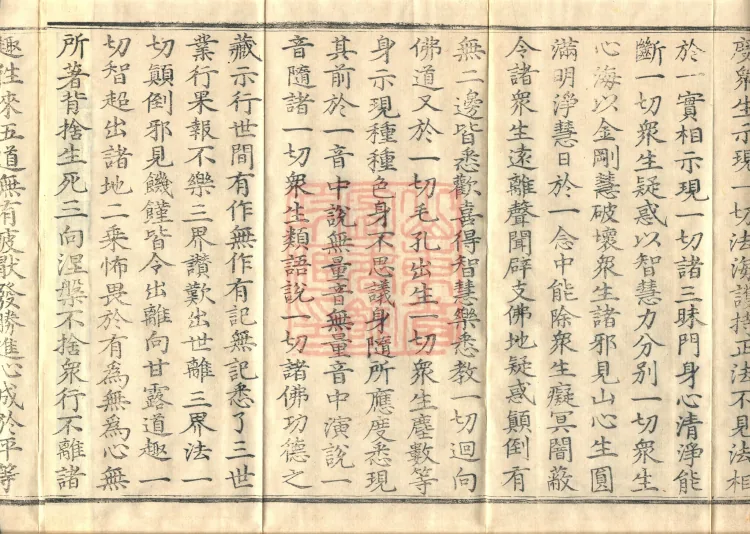 變衆生示現一切法海護持正法不見法相
於一實相示現一切諸三昧門身心清淨能
斷一切衆生疑惑以智慧力分別一切衆生
心海以金剛慧破壞衆生諸邪見山心生圓
滿明淨慧日於一念中能除衆生癡冥闇蔽
令諸衆生遠離聲聞辟支佛地疑惑顛倒有
無二邊皆悉歡喜得智慧樂悉教一切迴向
佛道又於一切毛孔出生一切衆生塵數等
身示現種種色身不思議身隨所應度悉現
其前於一音中說無量音無量音中演說一
音隨諸一切衆生類語說一切諸佛功德之
藏示行世間有作無作有記無記悉了三世
業行果報不樂三界讚歎出世離三界法一
切顛倒邪見饑饉皆令出離向甘露道趣一
切智超出諸地二乘怖畏於有為無為心無
所著背捨生死三向涅槃不捨衆行不離諸
趣往來五道無有疲厭發勝進心成於平等